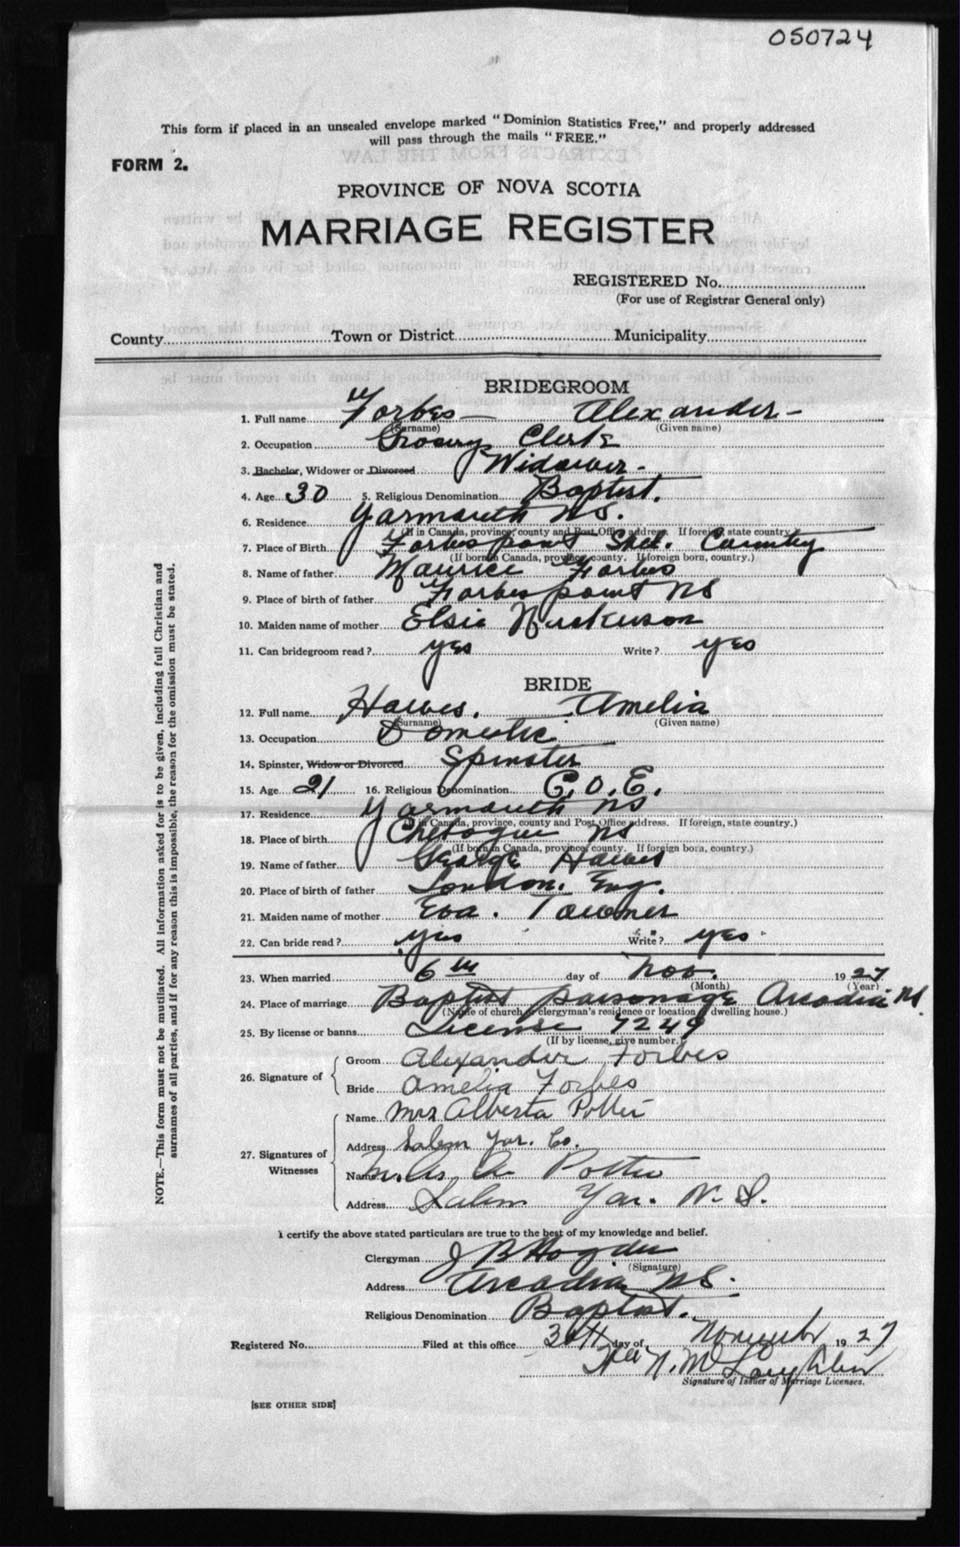 050724
This form if placed in an unsealed envelope marked "Dominion Statistics Free," and properly addressed
will pass through the mails "FREE."
FORM 2.
PROVINCE OF NOVA SCOTIA
MARRIAGE REGISTER
REGISTERED No.
(For use of Registrar General only)
County Town or District Municipality
BRIDEGROOM
1. Full name Forbes Alexander
(Surname) (Given name)
2. Occupation Grocery Clerk
3. Bachelor, Widower or Divorced Widower
4. Age 30 5. Religious Denomination Baptist.
6. Residence Yarmouth NS.
(If in Canada, province, county and Post Office address. If foreign, state country.)
7. Place of Birth Forbes point Shel. Country
(If born in Canada, province, county. If foreign born, country.)
8. Name of father Maurice Forbes
9. Place of birth of father Forbes point NS
10. Maiden name of mother Elsie
11. Can bridegroom read? yes Write? yes
BRIDE
12. Full name Hawes. Amelia
(Surname) (Given name)
13. Occupation Domestic
14. Spinster, Widow or Divorced Spinster
15. Age 21 16. Religious Denomination C.O.E.
17. Residence Yarmouth NS
(If in Canada, province, county and Post Office address. If foreign, state country.)
18. Place of birth Chebogue NS
(If born in Canada, province, county. If foreign born, country.)
19. Name of father George Hawes
20. Place of birth of father London. Eng.
21. Maiden name of mother Eva. Towner
22. Can bride read? yes Write? yes
23. When married 6th day of Nov. 1927
(Month) (Year)
24. Place of marriage Baptist parsonage Arcadia NS
(Name of church or clergyman's residence or location of dwelling house.)
25. By license or banns License 7249
(If by license, give number.)
26. Signature of
Groom Alexander Forbes
Bride Amelia Forbes
27. Signatures of Witnesses
Name Mrs Alberta Potter
Address Salem Yar. Co.
Name Potter
Address Salem Yar. N.S.
I certify the above stated particulars are true to the best of my knowledge and belief.
Clergyman J B
(Signature)
Address Arcadia NS.
Religious Denomination Baptist.
Registered No. Filed at this office 30th day of November 1927
N. McLaughlin
Signature of Issuer of Marriage Licenses.
[SEE OTHER SIDE]
NOTE.—This form must not be mutilated. All information asked for is to be given, including full Christian and
surnames of all parties, and if for any reason this is impossible, the reason for the omission must be stated.